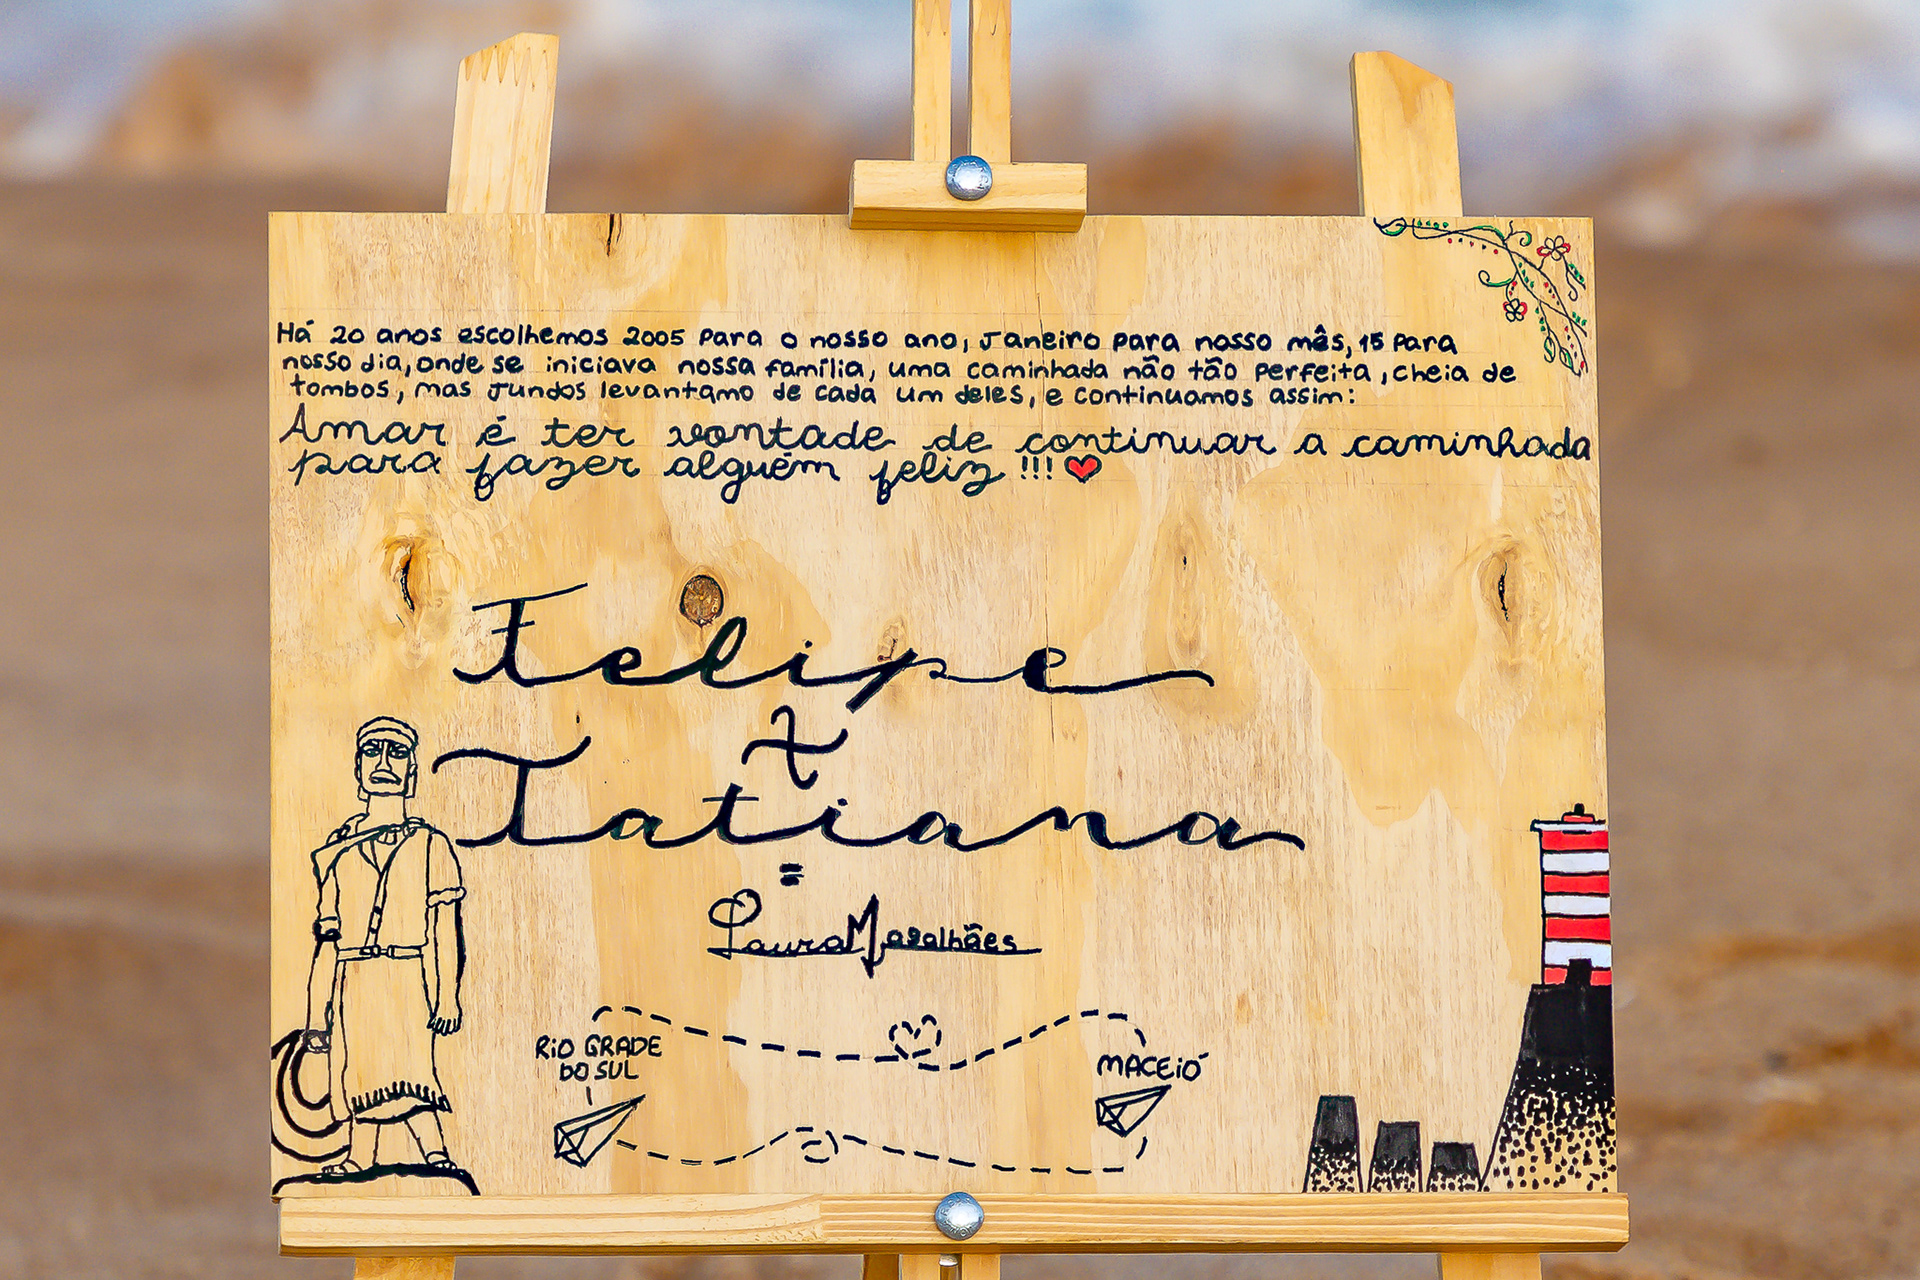 Há 20 anos escolhemos 2005 para o nosso ano, Janeiro para nosso mês, 15 para
nosso dia, onde se iniciava nossa família, uma caminhada não tão perfeita, cheia de
tombos, mas Jundos levantamo de cada um deles, e continuamos assim:
Amar é ter vontade de continuar a caminhada
para fazer alguém feliz !!!
Felipe
+
Tatiana
=
Laura Magalhães
RIO GRADE
DO SUL
MACEIÓ